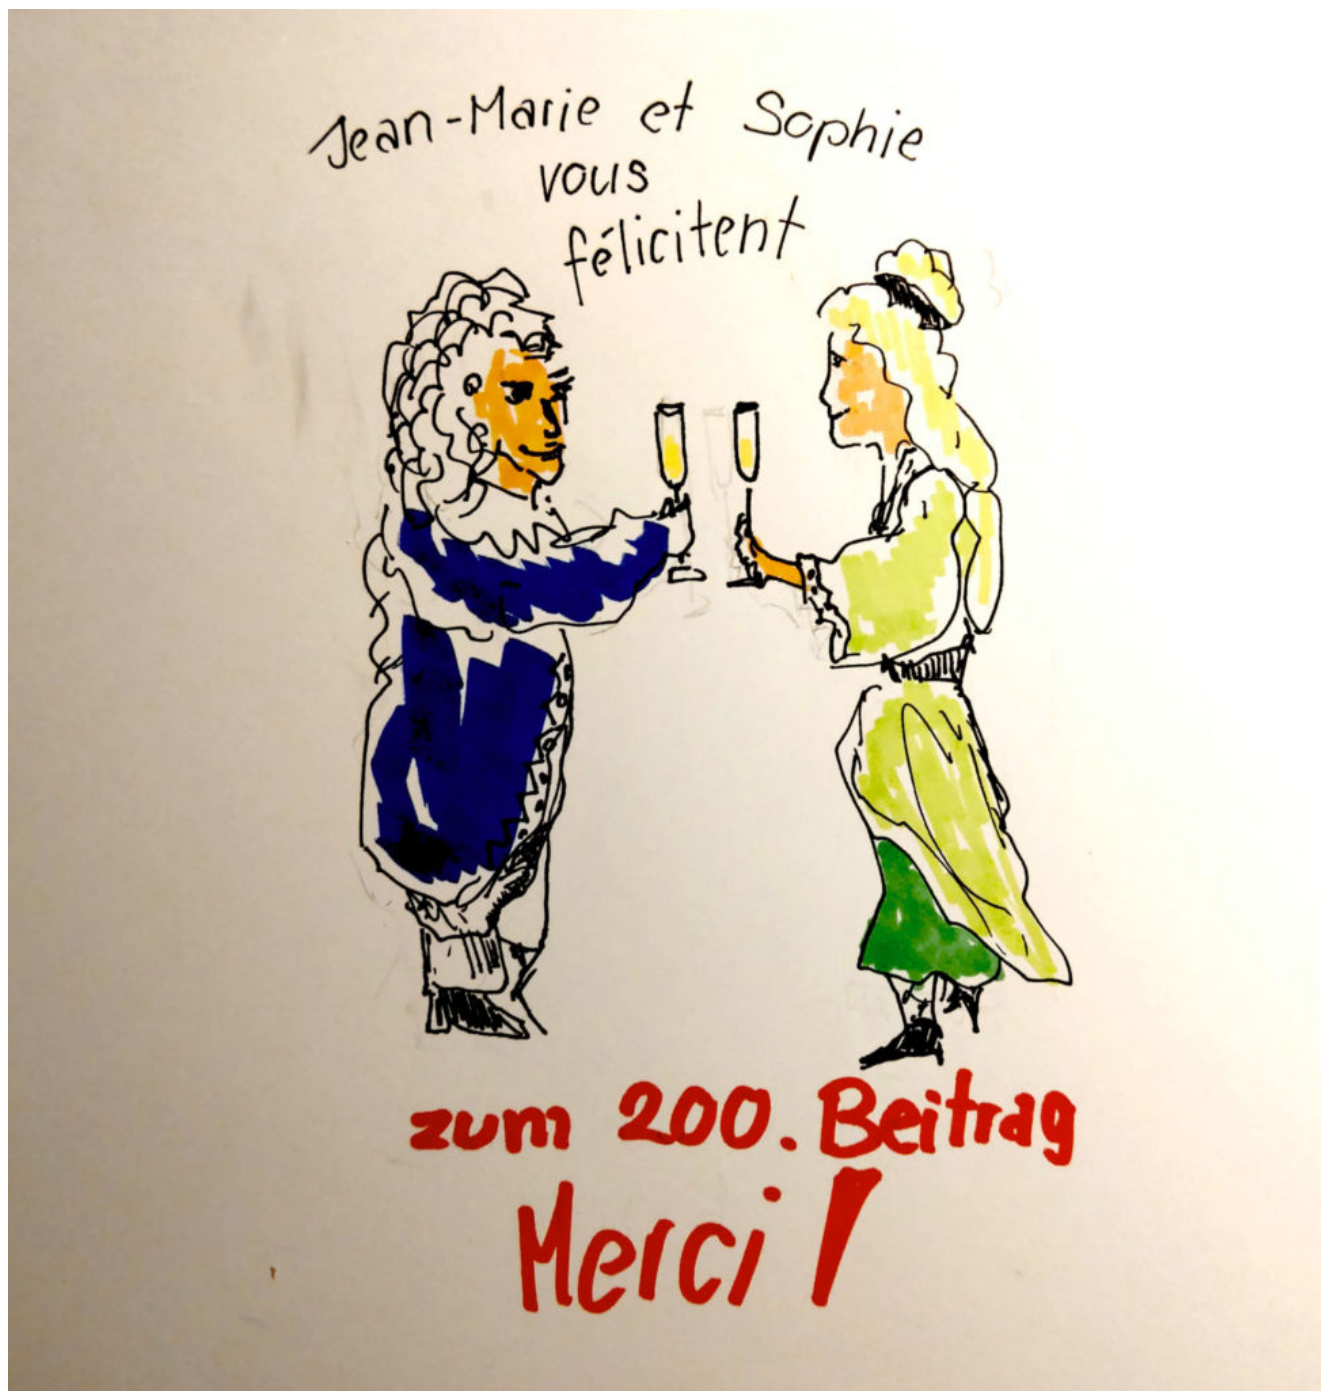 Jean-Marie et Sophie
vous
félicitent
zum 200. Beitrag
Merci!